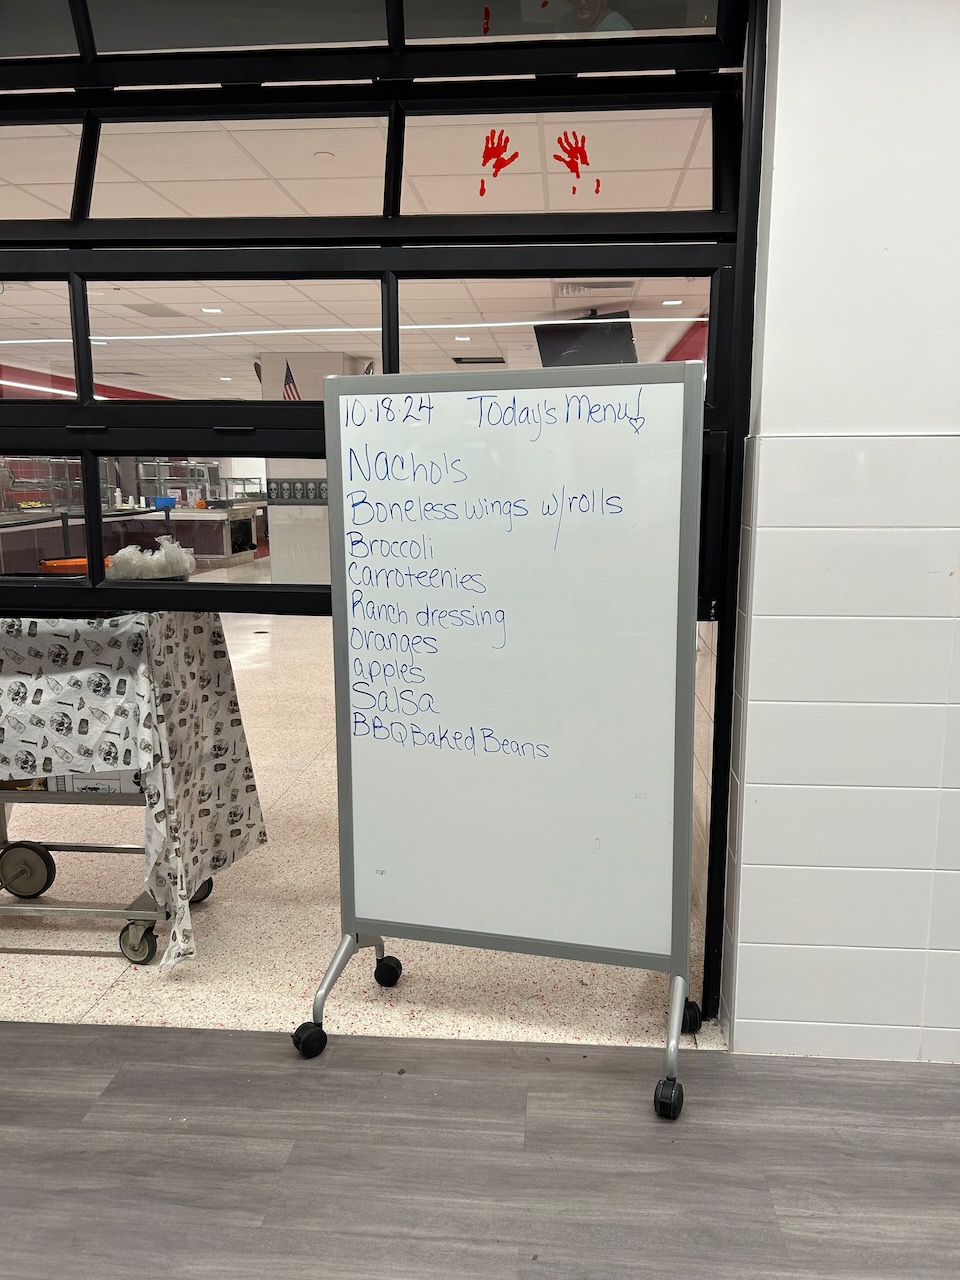 10.18.24 Today's Menu!
Nacho's
Boneless wings w/rolls
Broccoli
Carroteenies
Ranch dressing
oranges
apples
Salsa
BBQ Baked Beans